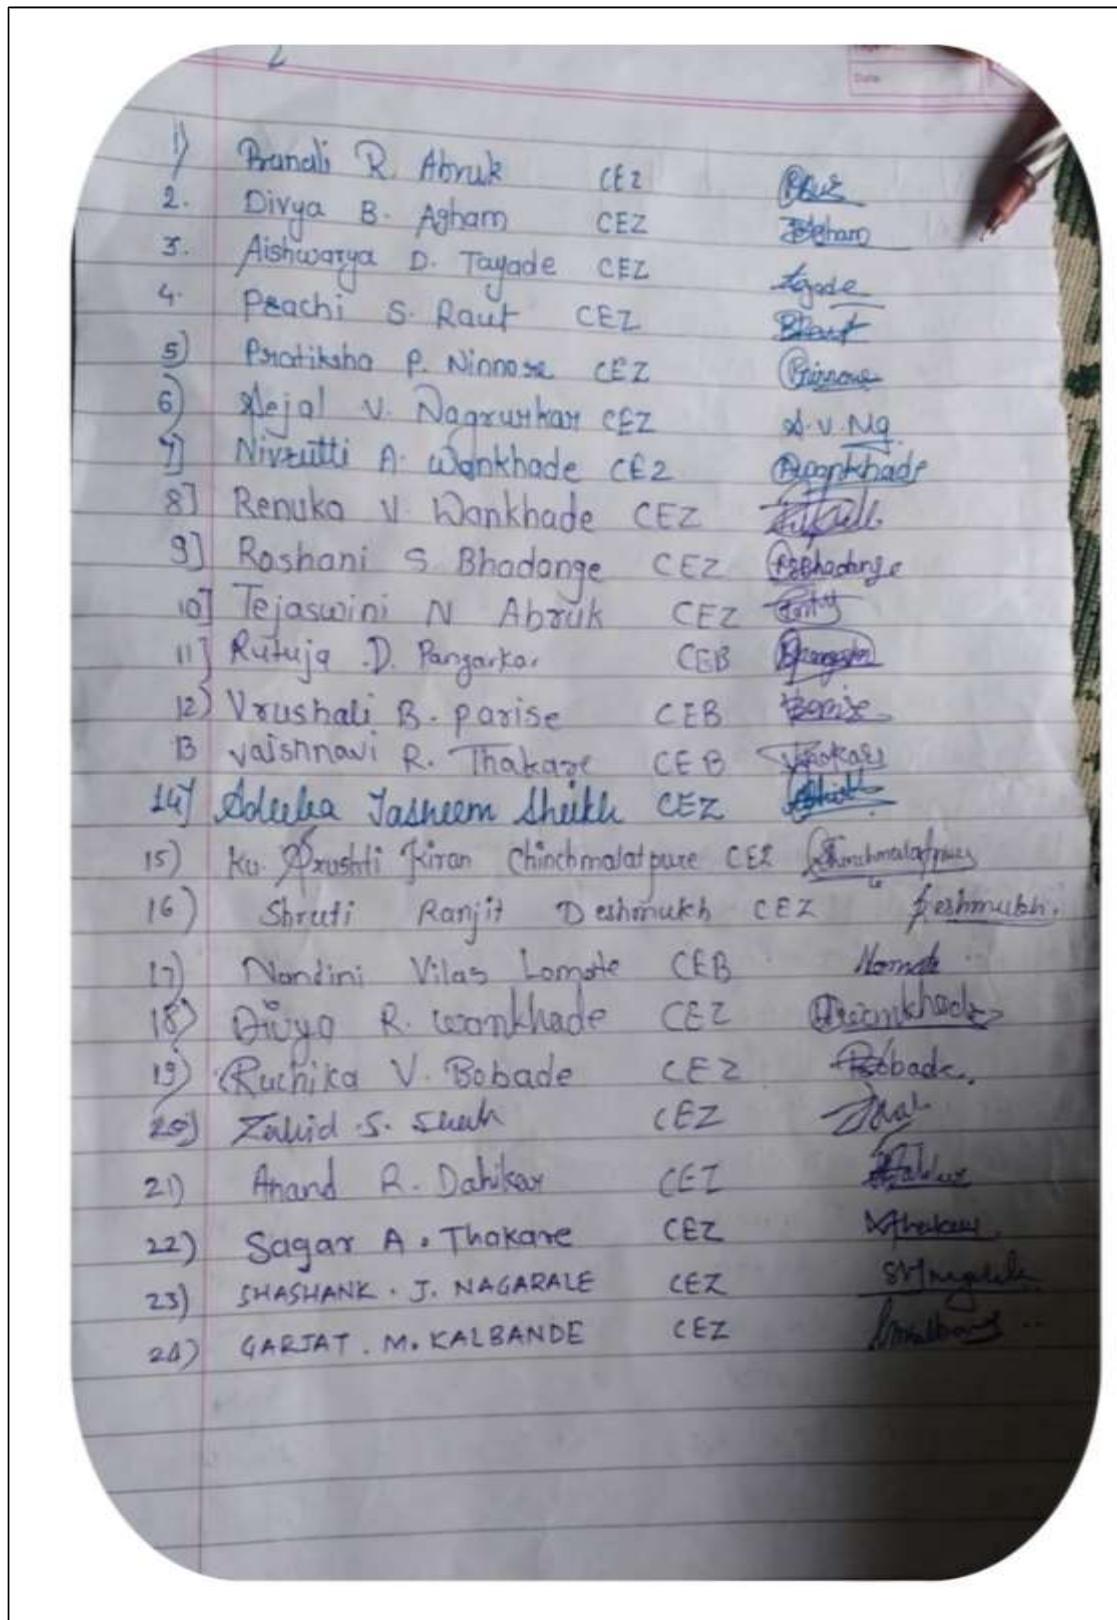 2
Date
1) Pranali R. Abruk CEZ
2. Divya B. Agham CEZ Agham
3. Aishwarya D. Tayade CEZ Tayade
4. Prachi S. Raut CEZ PRaut
5) Pratiksha P. Ninnore CEZ Pninnore
6) Sejal V. Nagrurkar CEZ S.V.Ng.
7] Nivrutti A. Wankhade CEZ Wankhade
8] Renuka V. Wankhade CEZ
9] Roshani S Bhadange CEZ RSBhadange
10] Tejaswini N Abruk CEZ
11] Rutuja .D. Pangarkar CEB
12) Vrushali B. parise CEB Parise
13 vaishnavi R. Thakare CEB Thakare
14) Adeeba Tasneem Sheikh CEZ
15) Ku. Srushti Kiran Chinchmalatpure CEZ Chinchmalatpure
16) Shruti Ranjit Deshmukh CEZ Deshmukh.
17) Nandini Vilas Lomate CEB
18) Divya R. wankhade CEZ Drwankhade
19) Ruchika V. Bobade CEZ Bobade.
20) Zahid .S. CEZ
21) Anand R. Dahikar CEZ
22) Sagar A. Thakare CEZ Thakare
23) SHASHANK . J. NAGARALE CEZ
24) GARJAT . M. KALBANDE CEZ